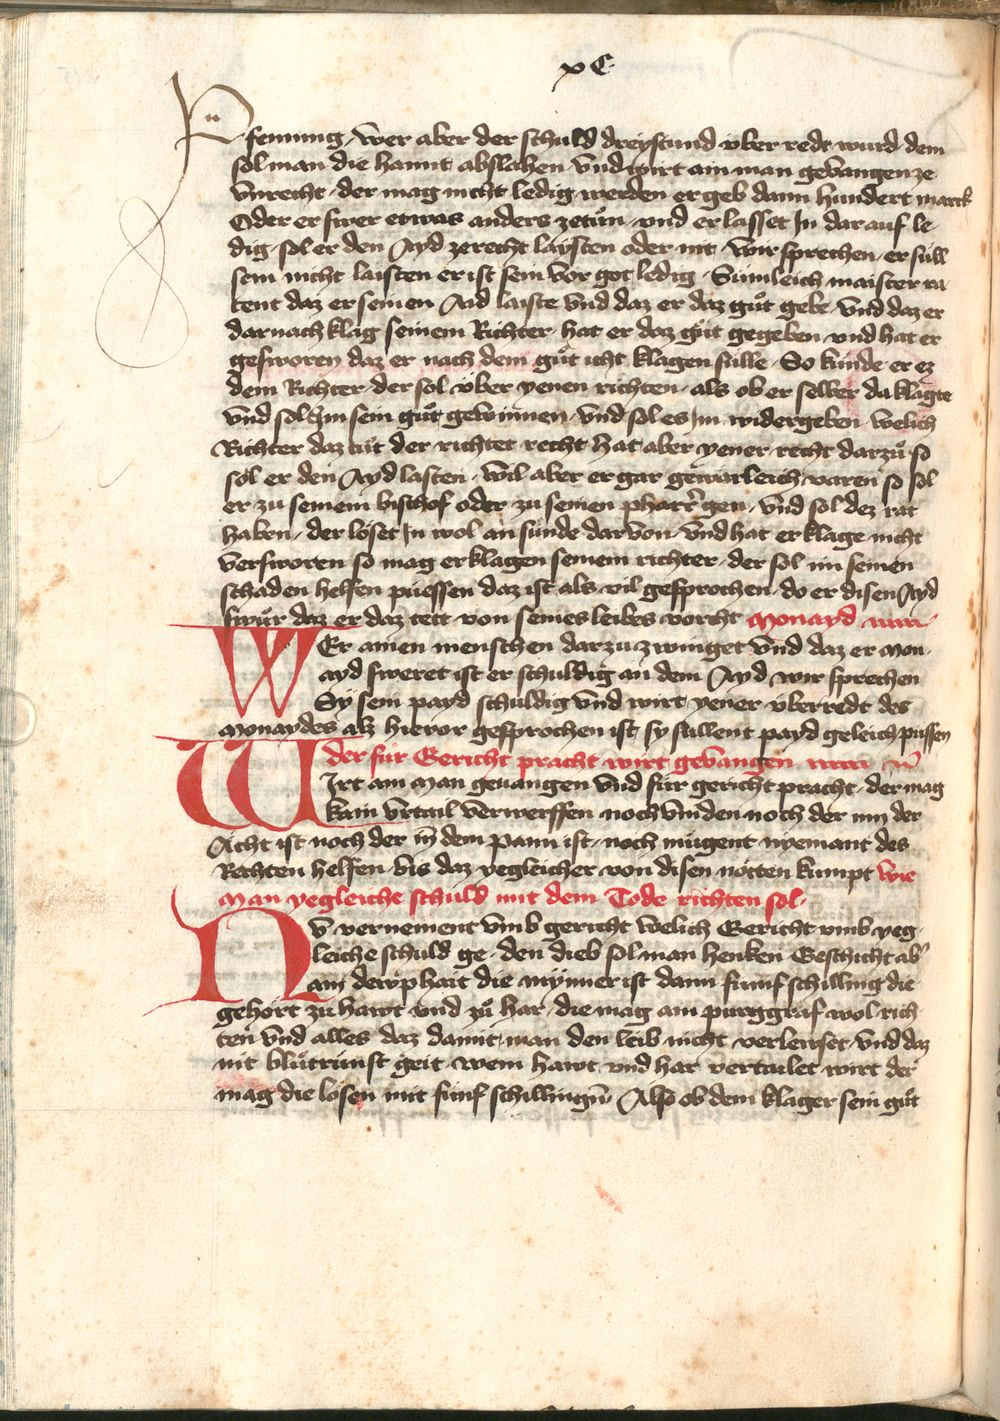 xC
Pfenning, wer aber der schuld dreystund über redt wurd dem
sol man die hannt abslahen vnd wirt ain man gevangen ze
vnrecht der mag nicht ledig werden er geb dann hundert marck
Oder er swer etwas anders zetůn vnd er lasset In dar auf le
dig sol er den Ayd ze recht laysten oder nit wir sprechen er süll
sein nicht laisten er ist sein vor got ledig Sümleich maister ra
tent daz er seinen Aid laiste vnd daz er daz gůt gebe vnd daz er
darnach klag seinem Richter hat er daz gůt gegeben vnd hat er
gesworen daz er nach dem gůt icht klagen sülle So künde er ez
dem Richter der sol über yenen richten als ob er selber da klagte
vnd sol Im sein gůt gewinnen vnd sol es Im widergeben welich
Richter daz tůt der richtet recht hat aber yener recht darzů so
sol er den Ayd lasten wil aber er gar gewarleich varen so sol
er zu seinem bischof oder zu seinem pharrer gen vnd sol dez rat
haben, der löset In wol an sünde darvon vnd hat er klage nicht
versworen so mag er klagen seinem richter der sol im seinen
schaden helfen püessen daz ist als vil gesprochen do er disen Ayd
swůr daz er daz tett von seines leibes vorcht monayd
WEr ainen menschen darzu zwinget vnd daz er mon
ayd sweret ist er schuldig an dem Ayd wir sprechen
Sy sein payd schuldig vnd wirt yener überredt des
monaydes als hievor gesprochen ist sy süllent payd geleich püssen
der für Gericht pracht wirt gevangen
WIrt ain man geuangen vnd für gericht pracht der mag
kain vrtail verwerffen noch vinden noch der inn der
Acht ist noch der in dem pann ist noch mügent nyemant des
Rechten helfen bis daz yegleicher von disen nötten kumpt wie
man yegleiche schuld mit dem Tode richten sol
NV vernement vmb gericht welich Gericht vmb yeg
leiche schuld ge den dieb sol man henken Geschicht ab
ain dewphait die mynner ist dann fünf schilling die
gehört zu hawt vnd zů har die mag ain purggraf wol rich
ten vnd alles daz damit man den leib nicht verlewset vnd daz
nit blůtrünst geit wem hawt vnd har vertailet wirt der
mag die lösen mit fünf schillingn Also ob dem klager sein gůt